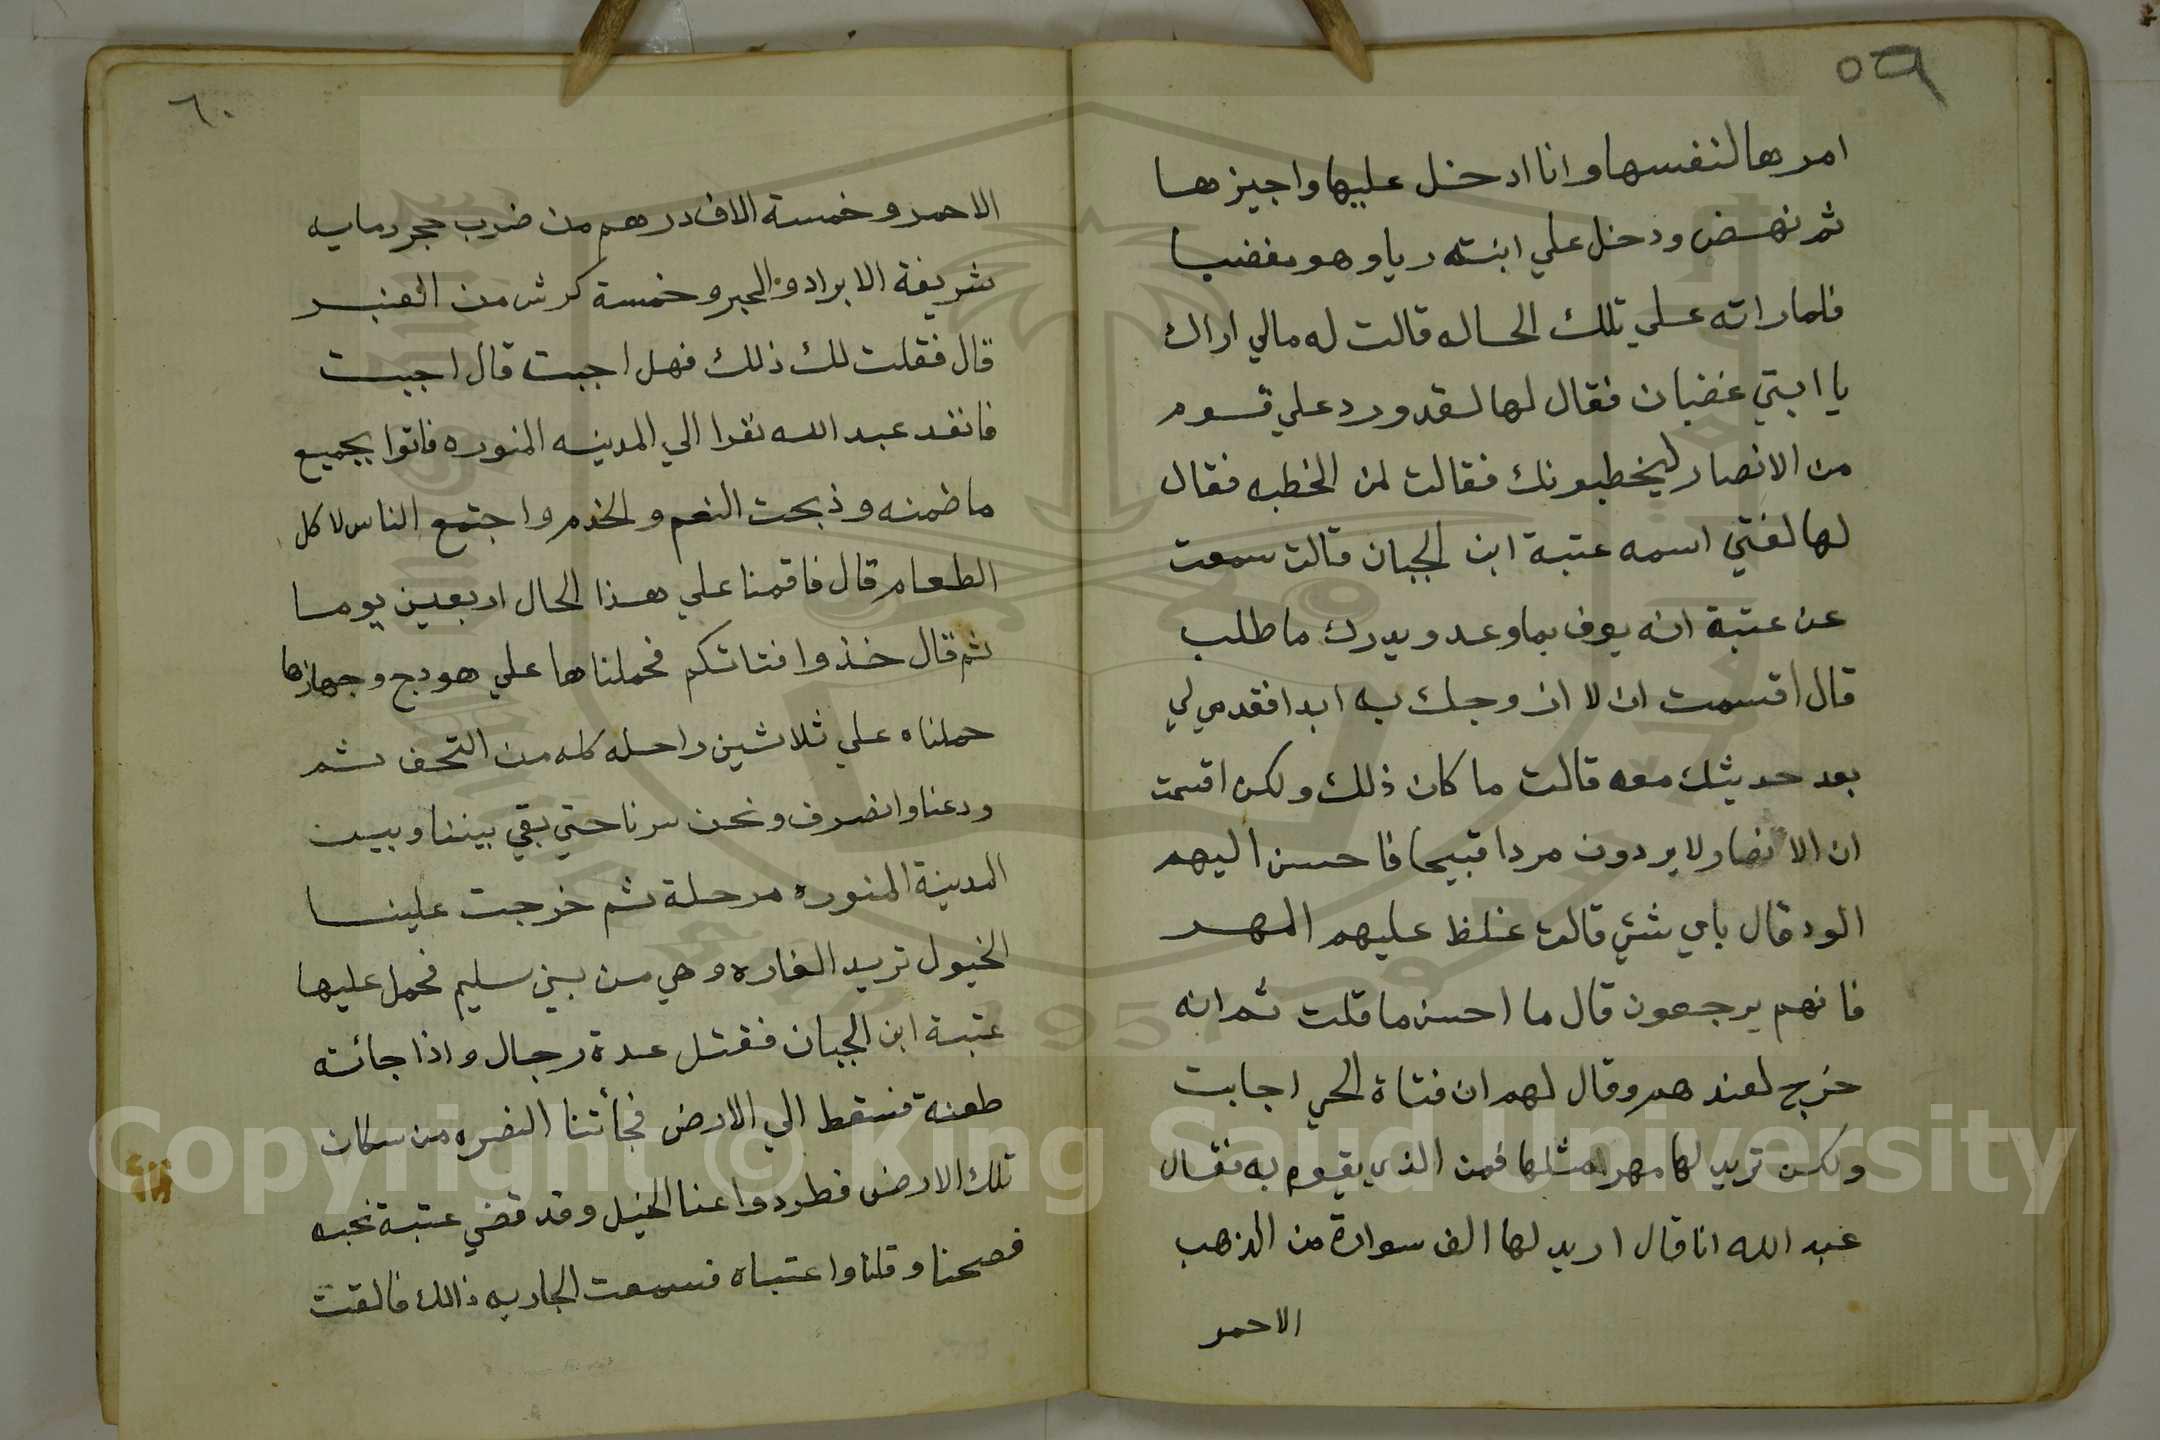 ٥٩
امرها لنفسها وانا ادخل عليها واجيزها
ثم نهض ودخل علي ابنته ريا وهو مغضبا
فلما راته علي تلك الحاله قالت له مالي اراك
يا ابتي غضبان فقال لها لقد ورد علي قوم
من الانصار ليخطبونك فقالت لمن الخطبه فقال
لها لفتي اسمه عتبة ابن الجبان قالت سمعت
عن عتبة انه يوف بما وعد ويدرك ما طلب
قال اقسمت ان لا ازوجك به ابدا فقد مي لي
بعد حديثك معه قالت ما كان ذلك ولكن اقسمت
ان الانصار لا يردون مردا قبيحا فاحسن اليهم
الود قال باي شئي قالت غلظ عليهم المهر
فانهم يرجعون قال ما احسن ما قلت ثم انه
خرج لعندهم وقال لهم ان فتاة الحي اجابت
ولكن تريد لها مهرا مثلها فمن الذي يقوم به فقال
عبد الله انا قال اريد لها الف سوارة من الذهب
الاحمر
٦٠
الاحمر وخمسة الاف درهم من ضرب حجر ومايه
شريفة الابراد والحبر وخمسة كرش من العنبر
قال فقلت لك ذلك فهل اجبت قال اجبت
فانفد عبد الله نفرا الي المدينه المنوره فاتوا بجميع
ما ضمنه وذبحت النعم والخدم واجتمع الناس لاكل
الطعام قال فاقمنا علي هذا الحال اربعين يوما
ثم قال خذوا فتاتكم فحملناها علي هودج وجهازها
حملناه علي ثلاثين راحله كله من التحف ثم
ودعنا وانصرف ونحن سرنا حتي بقي بيننا وبين
المدينة المنوره مرحلة ثم خرجت علينا
الخيول تريد الغاره وهي من بني سليم فحمل عليها
عتبة ابن الجبان فقتل عدة رجال واذا جائته
طعنة فسقط الي الارض فجأتنا النصره من سكان
تلك الارض فطردوا عنا الخيل وقد قضي عتبة نحبه
فصحنا وقلنا واعتباه فسمعت الجاريه ذالك فالقت
Copyright © King Saud University
1957